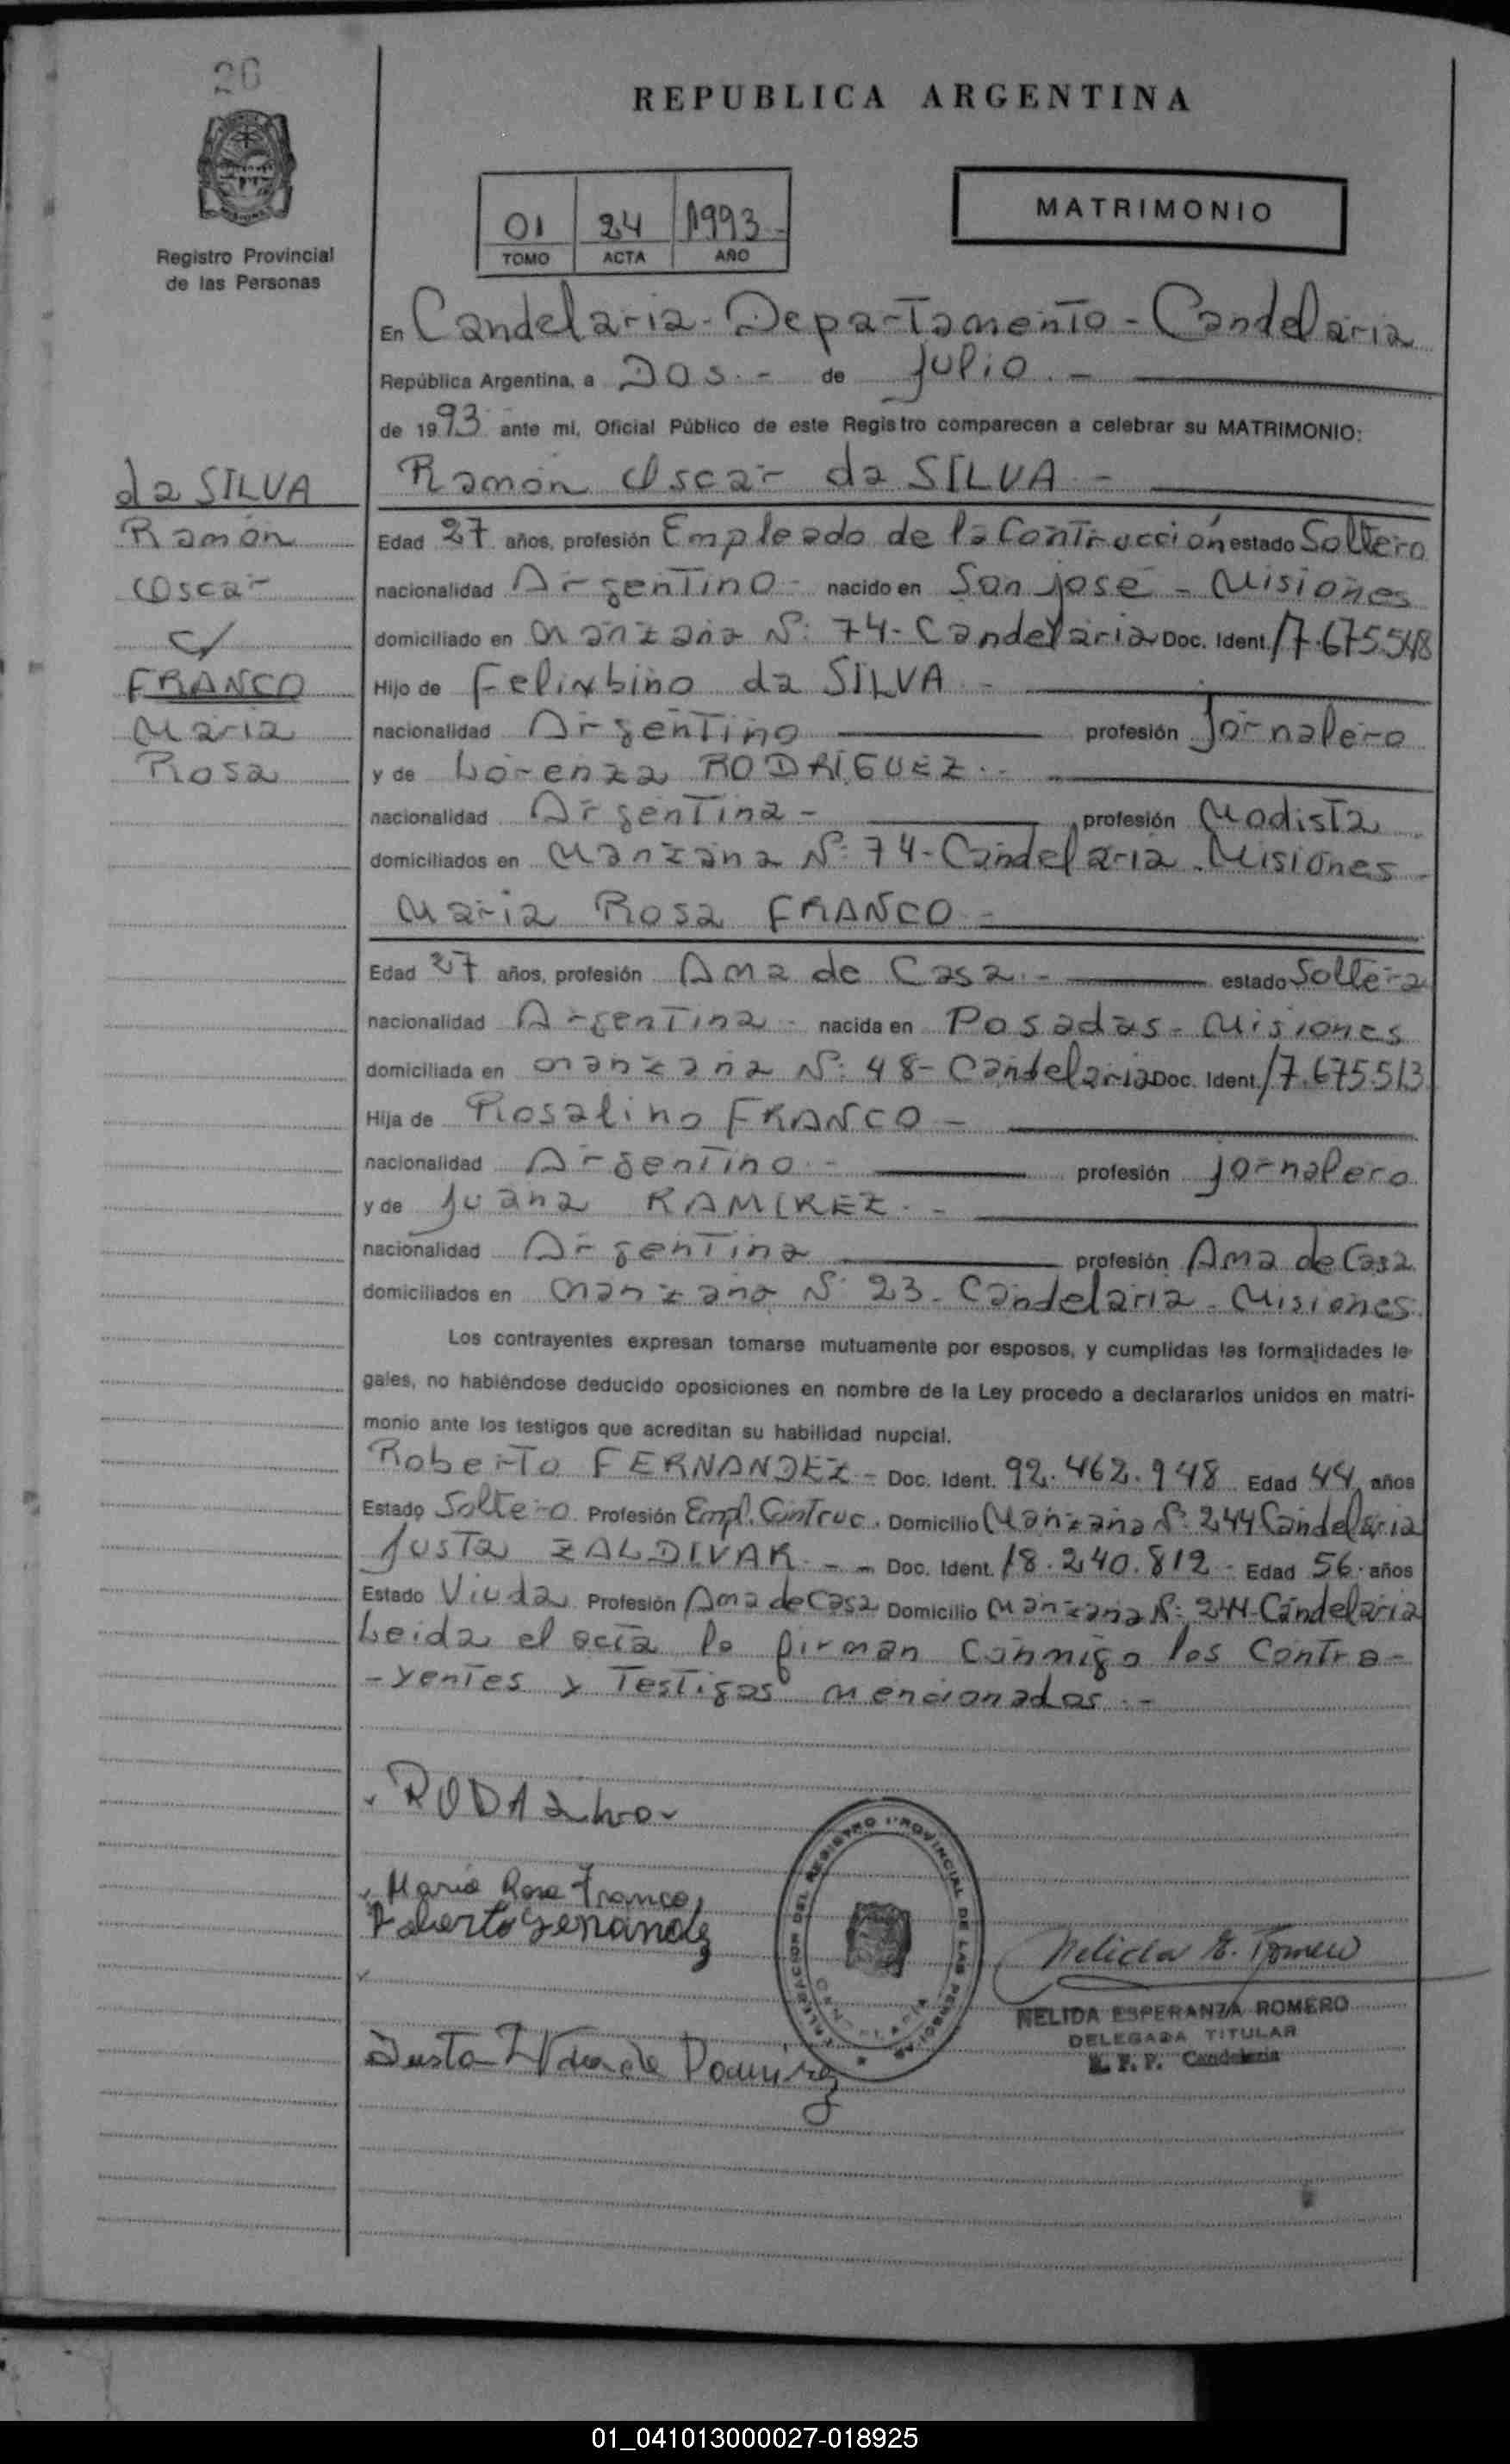 26
REPUBLICA ARGENTINA
Registro Provincial
de las Personas
01 24 1993
TOMO ACTA AÑO
MATRIMONIO
En Candelaria - Departamento - Candelaria
República Argentina, a Dos.- de Julio.-
de 1993 ante mi, Oficial Público de este Registro comparecen a celebrar su MATRIMONIO:
da SILVA
Ramón
Oscar
c/
FRANCO
Maria
Rosa
Ramón Oscar da SILVA -
Edad 27 años, profesión Empleado de la Contrucción estado Soltero
nacionalidad Argentino - nacido en San José - Misiones
domiciliado en Manzana Nº: 74 - Candelaria Doc. Ident. 17.675.548
Hijo de Felixbino da SILVA -
nacionalidad Argentino profesión Jornalero
y de Lorenza RODRIGUEZ.-
nacionalidad Argentina - profesión Modista
domiciliados en Manzana Nº: 74 - Candelaria - Misiones -
Maria Rosa FRANCO -
Edad 27 años, profesión Ama de Casa.- estado Soltera
nacionalidad Argentina - nacida en Posadas - Misiones
domiciliada en Manzana Nº: 48 - Candelaria Doc. Ident. 17.675.513
Hija de Rosalino FRANCO -
nacionalidad Argentino - profesión Jornalero
y de Juana RAMIREZ.-
nacionalidad Argentina profesión Ama de Casa
domiciliados en Manzana Nº 23 - Candelaria - Misiones
Los contrayentes expresan tomarse mutuamente por esposos, y cumplidas las formalidades le-
gales, no habiéndose deducido oposiciones en nombre de la Ley procedo a declararlos unidos en matri-
monio ante los testigos que acreditan su habilidad nupcial.
Roberto FERNANDEZ - Doc. Ident. 92.462.948 Edad 44 años
Estado Soltero Profesión Empl. Contruc. Domicilio Manzana Nº 244 Candelaria
Justa ZALDIVAR - - Doc. Ident. 18.240.812 - Edad 56 años
Estado Viuda Profesión Ama de Casa Domicilio Manzana Nº: 244 - Candelaria
Leida el acta la firman conmigo los contra-
-yentes y Testigos mencionados.-
Maria Rosa Franco
REGISTRO PROVINCIAL DE LAS PERSONAS
Nelida E. Romero
NELIDA ESPERANZA ROMERO
DELEGADA TITULAR
R. P. P. Candelaria
01_041013000027-018925